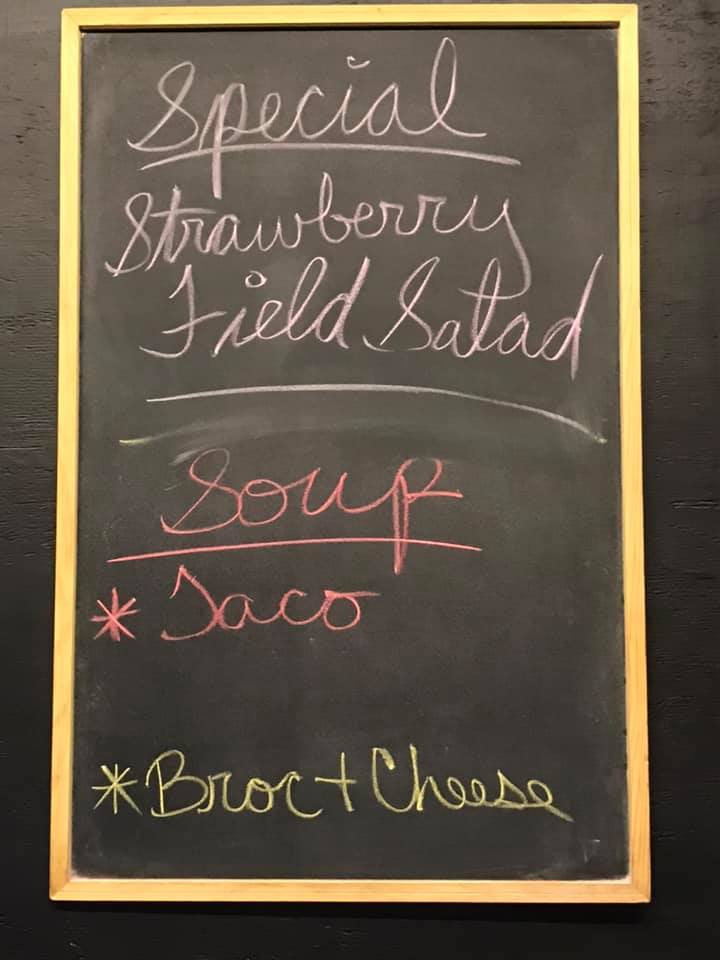 Special
Strawberry
Field Salad
Soup
* Taco
* Broc + Cheese